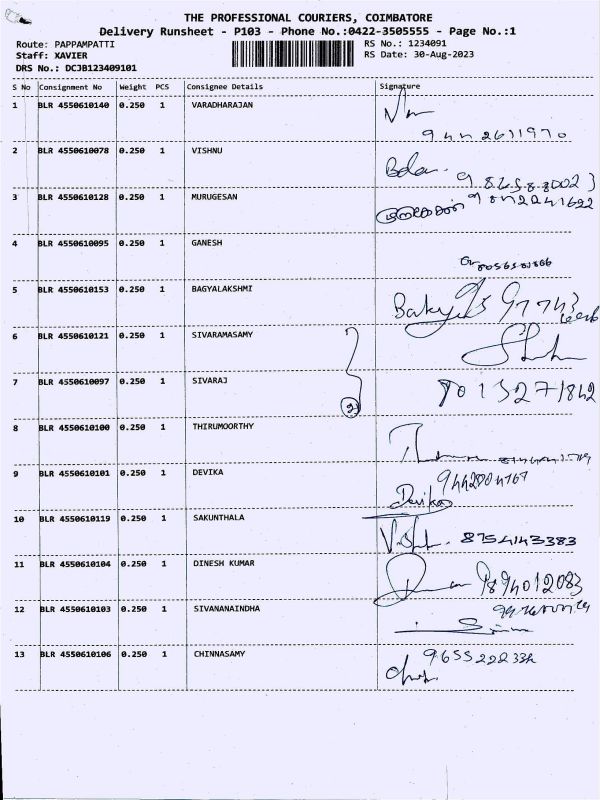 THE PROFESSIONAL COURIERS, COIMBATORE
Delivery Runsheet - P103 - Phone No.:0422-3505555 - Page No.:1
Route: PAPPAMPATTI RS No.: 1234091
Staff: XAVIER RS Date: 30-Aug-2023
DRS No.: DCJB123409101
S No Consignment No Weight PCS Consignee Details Signature
1 BLR 4550610140 0.250 1 VARADHARAJAN
9442611970
2 BLR 4550610078 0.250 1 VISHNU
3 BLR 4550610128 0.250 1 MURUGESAN
4 BLR 4550610095 0.250 1 GANESH
5 BLR 4550610153 0.250 1 BAGYALAKSHMI
6 BLR 4550610121 0.250 1 SIVARAMASAMY
7 BLR 4550610097 0.250 1 SIVARAJ
8 BLR 4550610100 0.250 1 THIRUMOORTHY
9 BLR 4550610101 0.250 1 DEVIKA
Devika
10 BLR 4550610119 0.250 1 SAKUNTHALA 8754143383
11 BLR 4550610104 0.250 1 DINESH KUMAR 9894012083
12 BLR 4550610103 0.250 1 SIVANANAINDHA
13 BLR 4550610106 0.250 1 CHINNASAMY